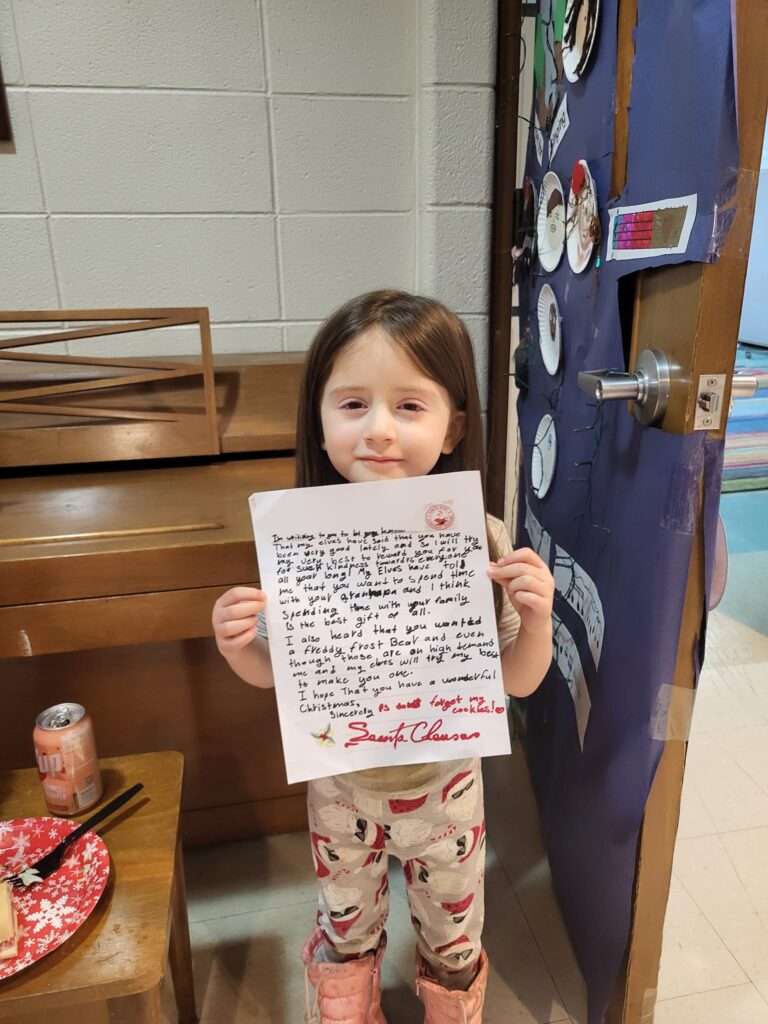 Im writing to you to let you know
That my elves have said that you have
been very good lately and so I will try
my very best to reward you for you
for such kindness towards everyone
all year long! My Elves have told
me that you want to spend time
with your Grandpa and I think
Spending time with your family
Is the best gift of all.
I also heard that you wanted
a freddy frost Bear and even
though those are on high demand
me and my elves will try my best
to make you one.
I hope That you have a wonderful
Christmas,
Sincerely Ps dont forget my
cookies!
Santa Clause
up